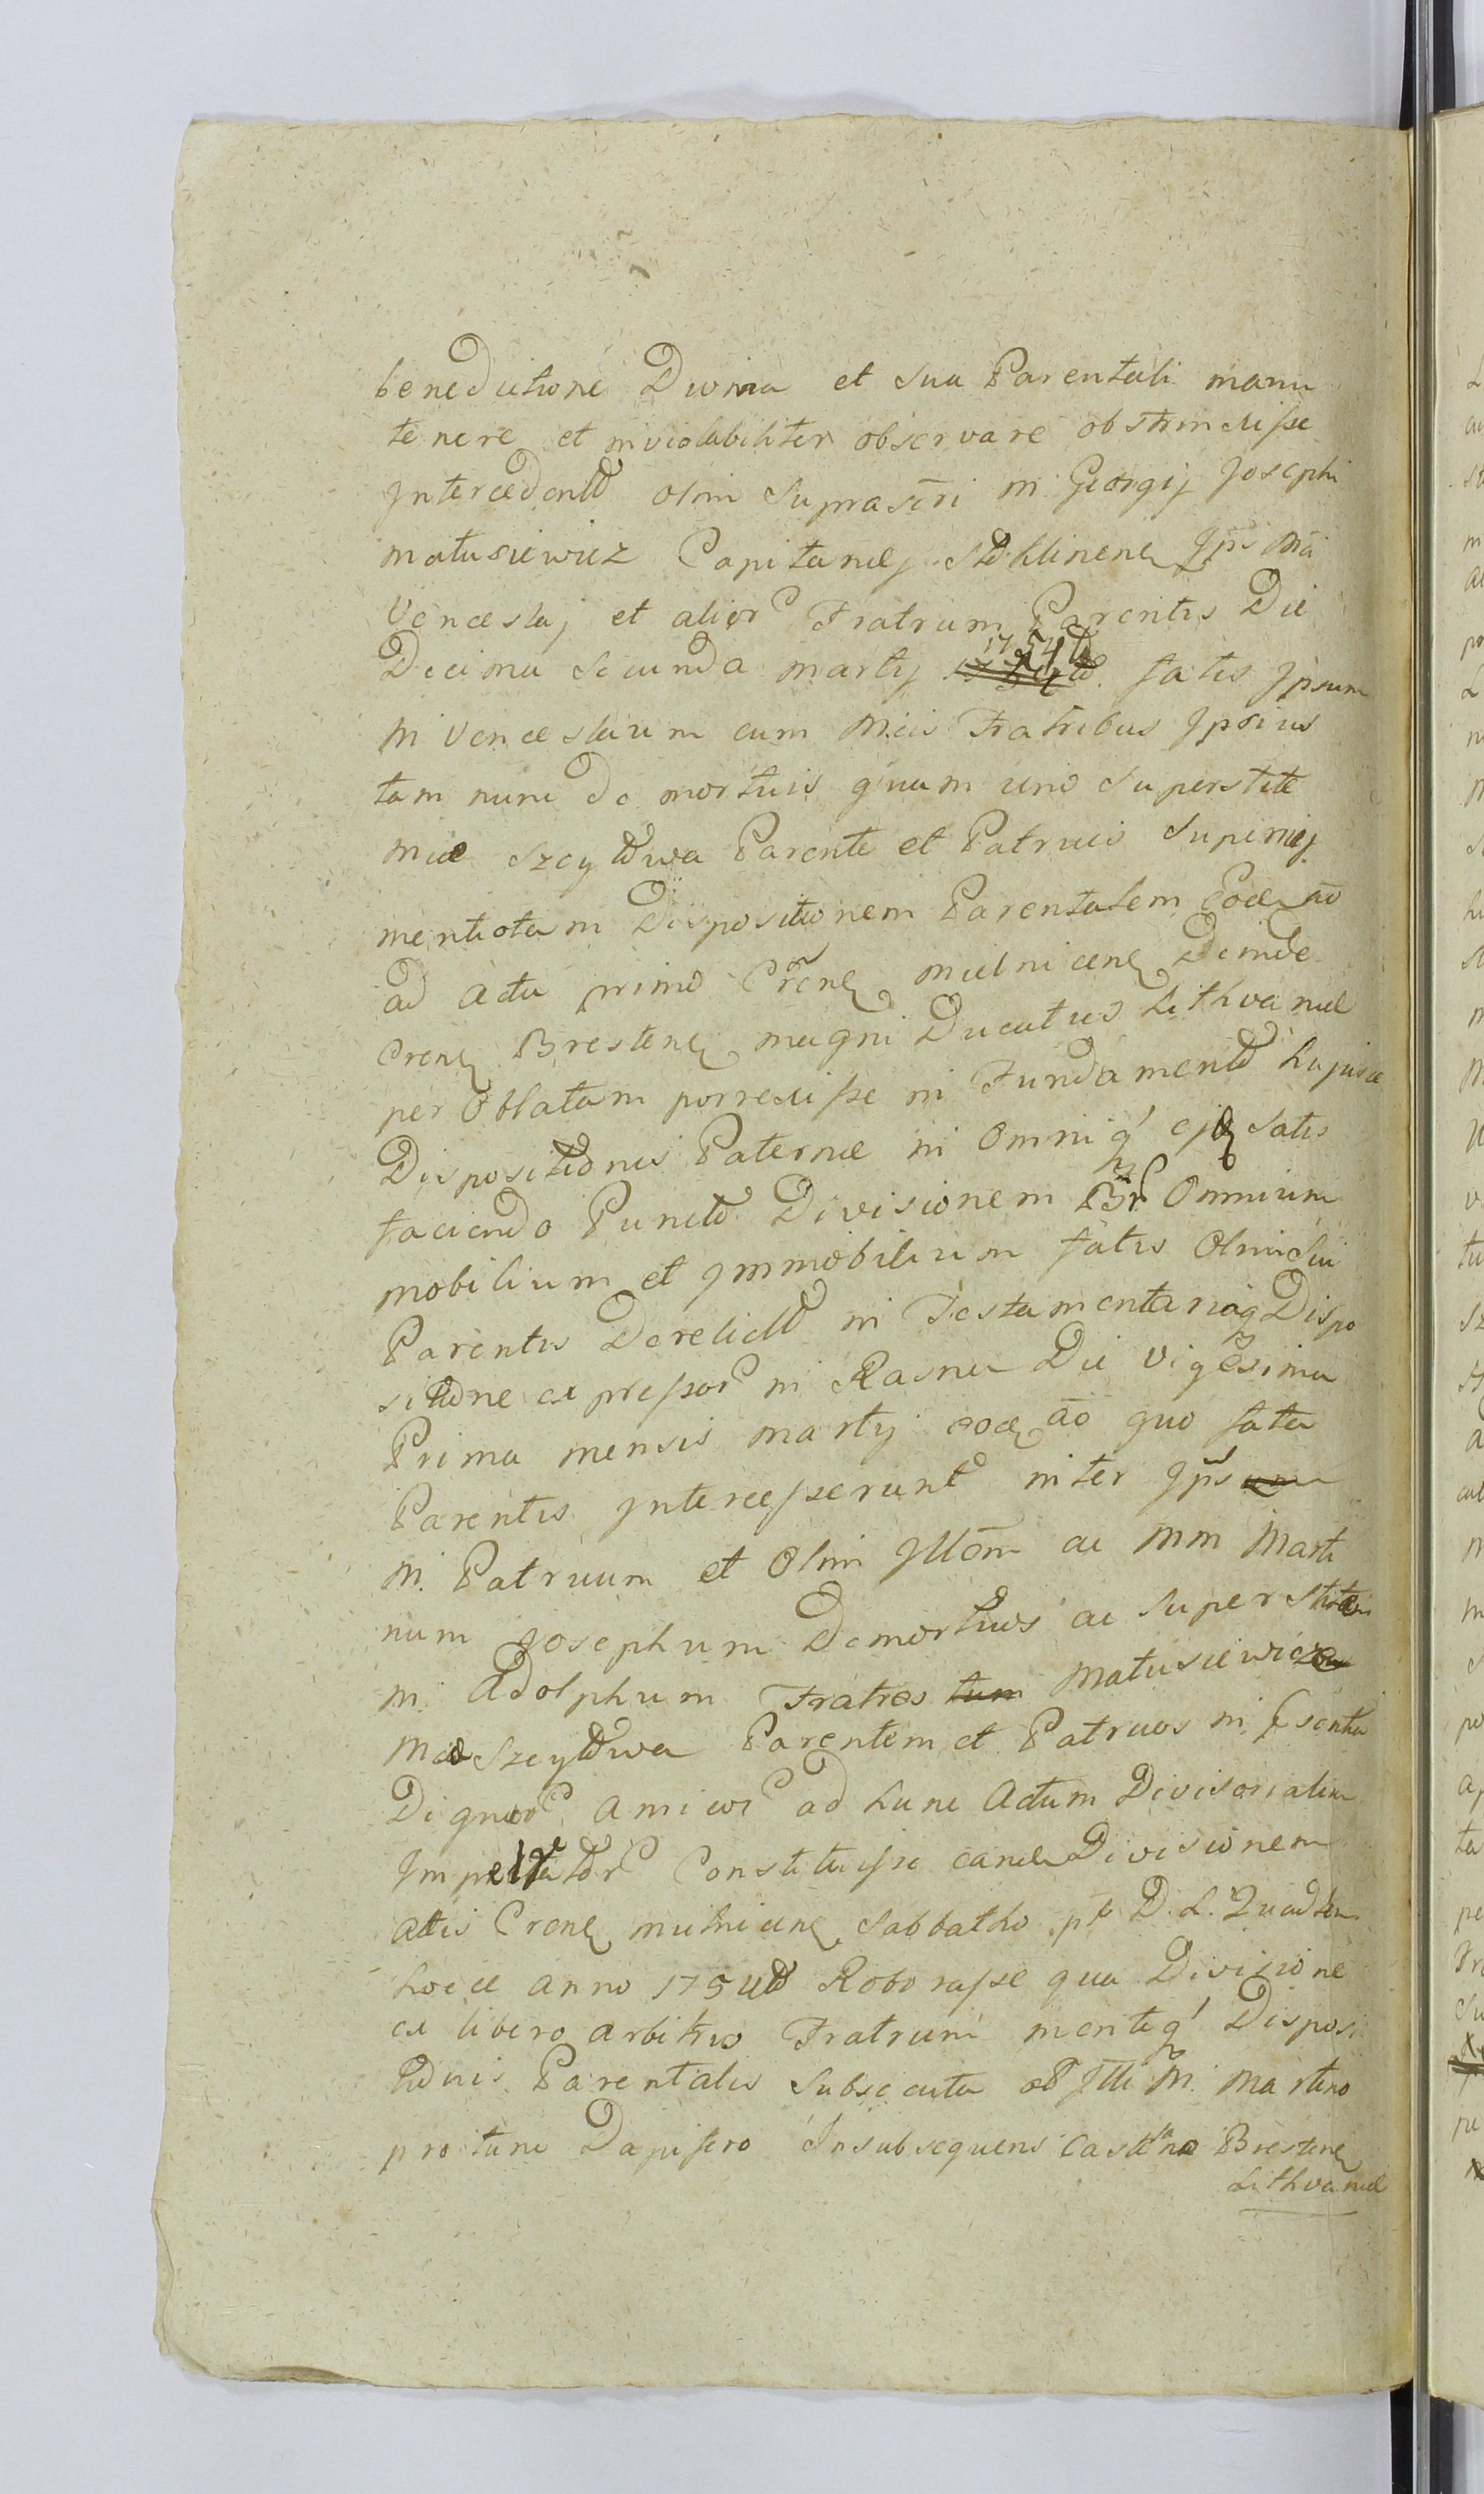 benedictione Divina et sua Parentali manu
tenere et inviolabiliter observare obstrinxisse
Intercedento olim supra scri M Georgij Josephi
Matusiewicz Capitanej Stoklinen Ipsi Ma
Venceslaj et alior Fratrum Parentis Die
Decima secunda martij 1754to fatis Ipsum
M Venceslaum cum Mcis Fratribus Ipsius
tam nunc de mortuis quam uno Superstite
Mcae Szeydowa Parente et Patruis Superius
mentiotam Dispositionem Parentalem Eode ao
ad acta primo Cren Mielnicen Deinde
Cren Bresten magni Ducatus Lithvaniae
per Oblatam porrexisse in Fundamento hujusce
Dispositionis Paternae in Omniq ejq satis
faciendo Puncto Divisionem Br Omnium
mobilium et Immobilium fatis Olim Sui
Parentis Derelicto in Testamentariaq Dispo
sitione expressor in Rasna Die Vigesima
Prima mensis martij eode ao quo fata
Parentis Intercesserunt inter Ips
M. Patruum et Olim Illom ac MM Marti
num Josephum Demortuos ac Superstitem
M. Adolphum Fratres tum Matusiewicz
Mae Szeydowa Parentem et Patruos in psentia
Dignor Amicor ad hunc Actum Divisorialem
Impetrator Constituisse eande Divisionem
actis Cren mielnicen Sabbatho pt D. L. Quad
hocce anno 1754to Roborasse qua Divisione
ex libero arbitrio Fratrum menteq Disposi
tionis Parentalis Subsecuta ab Illi M. Martino
pro tunc Dapifero Insubsequens Castlano Bresten
Lithvaniae